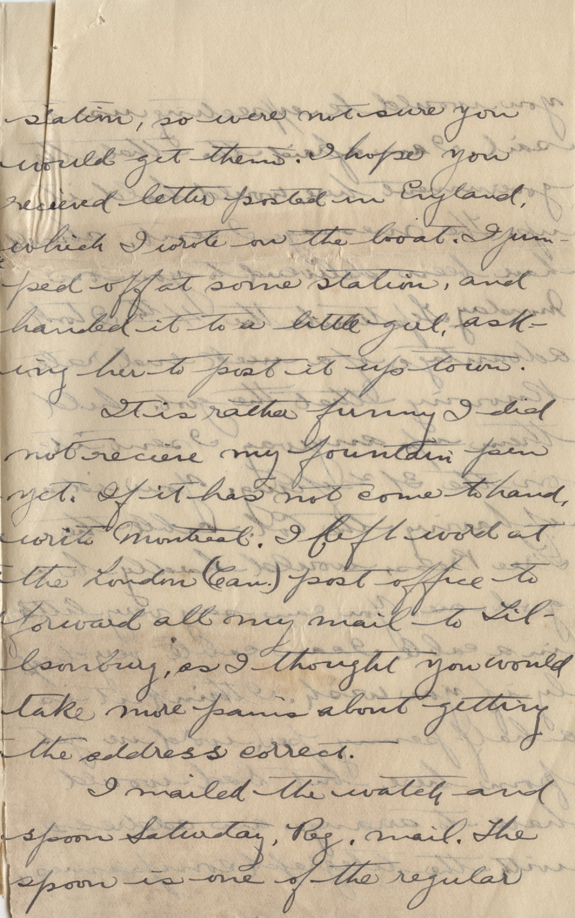 station, so were not sure you
would get them. I hope you
recieved letter posted in England,
which I wrote on the boat. I jum-
ped off at some station, and
handed it to a little girl, ask-
ing her to post it up town.
It is rather funny I did
not reciere my fountain pen
yet. If it has not come to hand,
write Montreal. I left word at
the London (Can.) post office to
forward all my mail to Til-
lsonburg, as I thought you would
take more pains about getting
the address correct.
I mailed the watch and
spoon Saturday, Reg. mail. The
spoon is one of the regular